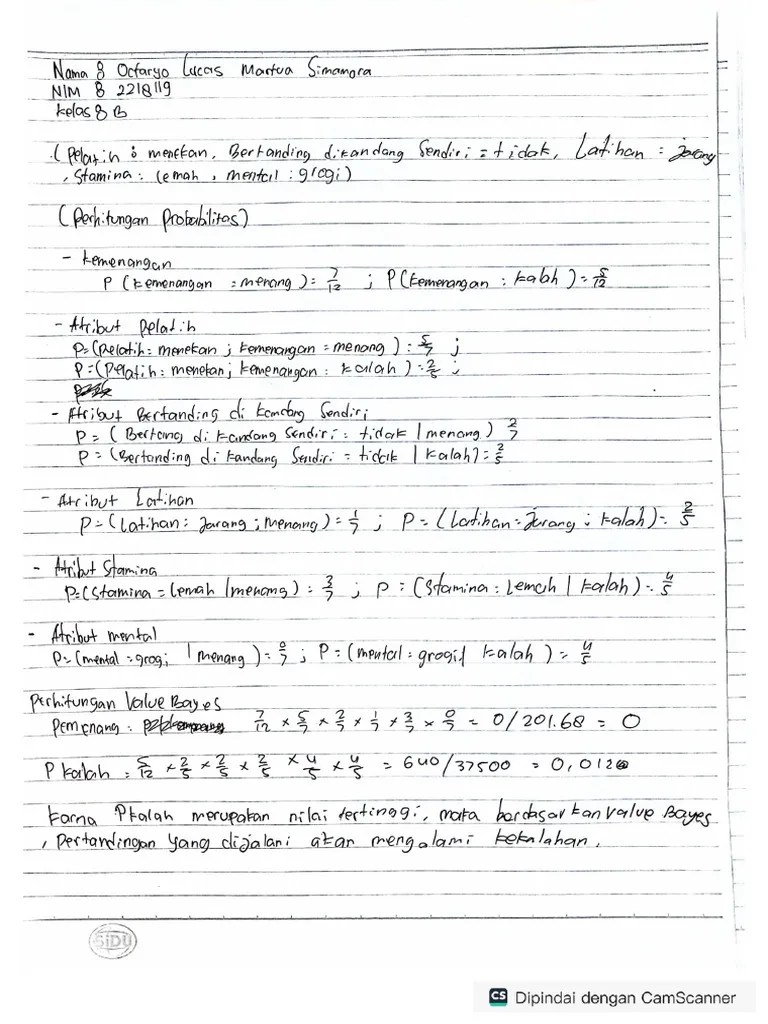 Nama 8 Octaryo Lucas Martua Simamora
NIM 8 2218119
Kelas 8 B
(Pelatih : menekan, Bertanding dikandang Sendiri = tidak, Latihan : jarang
, Stamina : lemah, mental : grogi)
(Perhitungan Probabilitas)
- Kemenangan
P (kemenangan : menang) = 7/12 ; P(kemenangan : kalah) = 5/12
- Atribut Pelatih
P=(Pelatih : menekan ; kemenangan = menang) : 5/7 ;
P=(Pelatih : menekan ; kemenangan : kalah) = 2/5 ;
- Atribut Bertanding di kandang Sendiri
P = (Bertang di kandang Sendiri : tidak | menang) 2/7
P = (Bertanding di kandang Sendiri = tidak | kalah) = 2/5
- Atribut Latihan
P=(Latihan : Jarang ; menang) = 1/7 ; P=(Latihan = Jarang ; kalah) = 2/5
- Atribut Stamina
P=(Stamina = lemah | menang) = 3/7 ; P = (Stamina : Lemah | kalah) = 4/5
- Atribut mental
P=(mental = grogi | menang) = 0/7 ; P=(mental : grogi | kalah) = 4/5
Perhitungan Value Bayes
Pemenang : 7/12 × 5/7 × 2/7 × 1/7 × 3/7 × 0/7 = 0/201.68 = 0
P kalah = 5/12 × 2/5 × 2/5 × 2/5 × 4/5 × 4/5 = 640/37500 = 0,0120
Karna Pkalah merupakan nilai tertinggi, maka berdasarkan value Bayes
, Pertandingan yang dijalani akan mengalami kekalahan.
SiDU
CS Dipindai dengan CamScanner